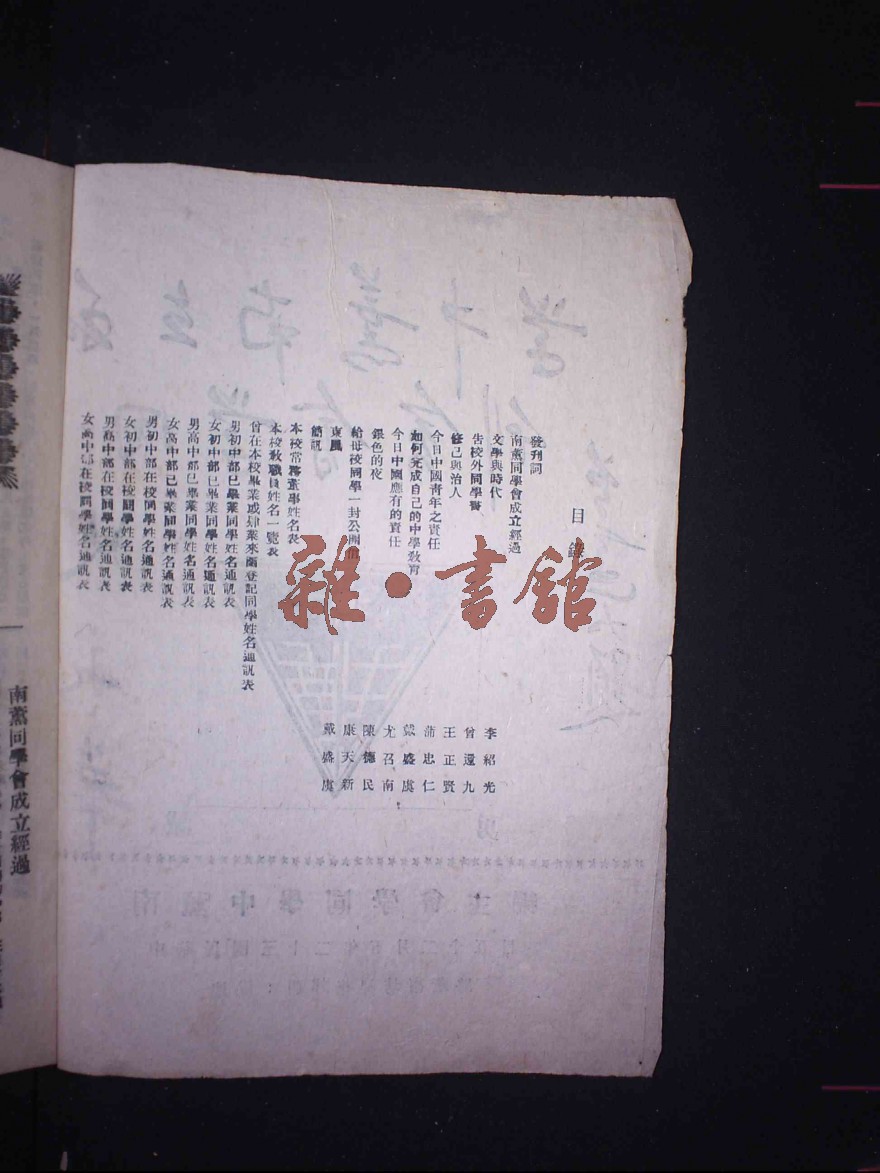 目錄
發刊詞
南薰同學會成立經過
文學與時代 李紹光
告校外同學書 曾還九
修己與治人 王正賢
今日中國青年之責任 蒲忠仁
如何完成自己的中學教育 戴盛虞
今日中國應有的責任 尤召南
銀色的夜 陳德民
給母校同學一封公開信 康天新
東風 戴盛虞
簡訊
本校常務董事姓名表
本校教職員姓名一覽表
曾在本校畢業或肆業來函登記同學姓名通訊表
男初中部已畢業同學姓名通訊表
女初中部已畢業同學姓名通訊表
男高中部已畢業同學姓名通訊表
女高中部已畢業同學姓名通訊表
男初中部在校同學姓名通訊表
女初中部在校同學姓名通訊表
男高中部在校同學姓名通訊表
女高中部在校同學姓名通訊表
雜·書館
南薰同學會成立經過